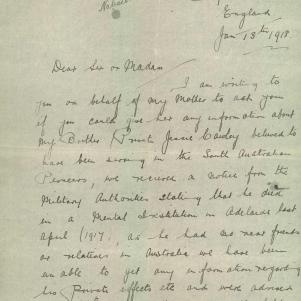 England
Jan 13th 1918.
Dear Sir or Madam
I am writing to
you on behalf of my Mother to ask you
if you could give her any information about
my Brother Private Jessie believed to
have been serving in the South Australian
Pioneers, we received a notice from the
Military Authorities stating that he died
in a Mental Institution in Adelaide last
April 1917, as he had no near friends
or relatives in Australia we have been
unable to get any information regarding
his Private effects etc and were advised